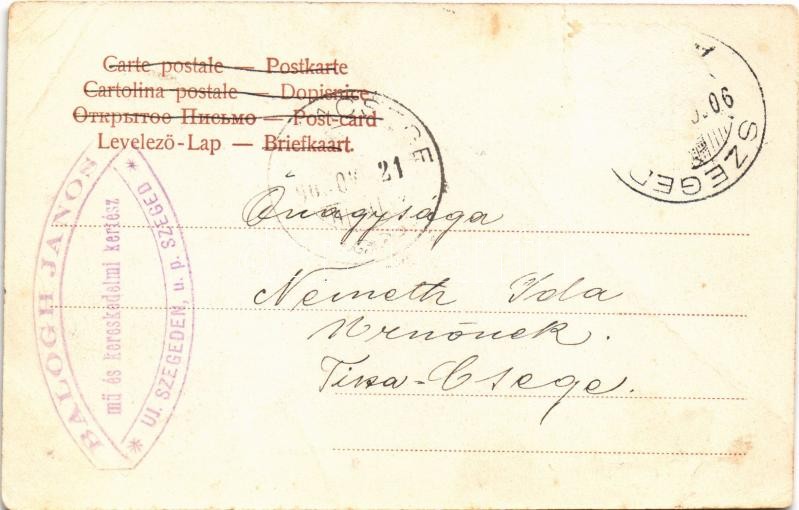 Carte postale — Postkarte
Cartolina postale — Dopisnice
Открытое Письмо — Post-card
Levelező-Lap — Briefkaart.
SZEGED
06
CSEGE
21
BALOGH JÁNOS
mű és kereskedelmi kertész
* UJ. SZEGEDEN, u. p. SZEGED *
Őnagysága
Németh Ida
Urnőnek.
Tisza-Csege.